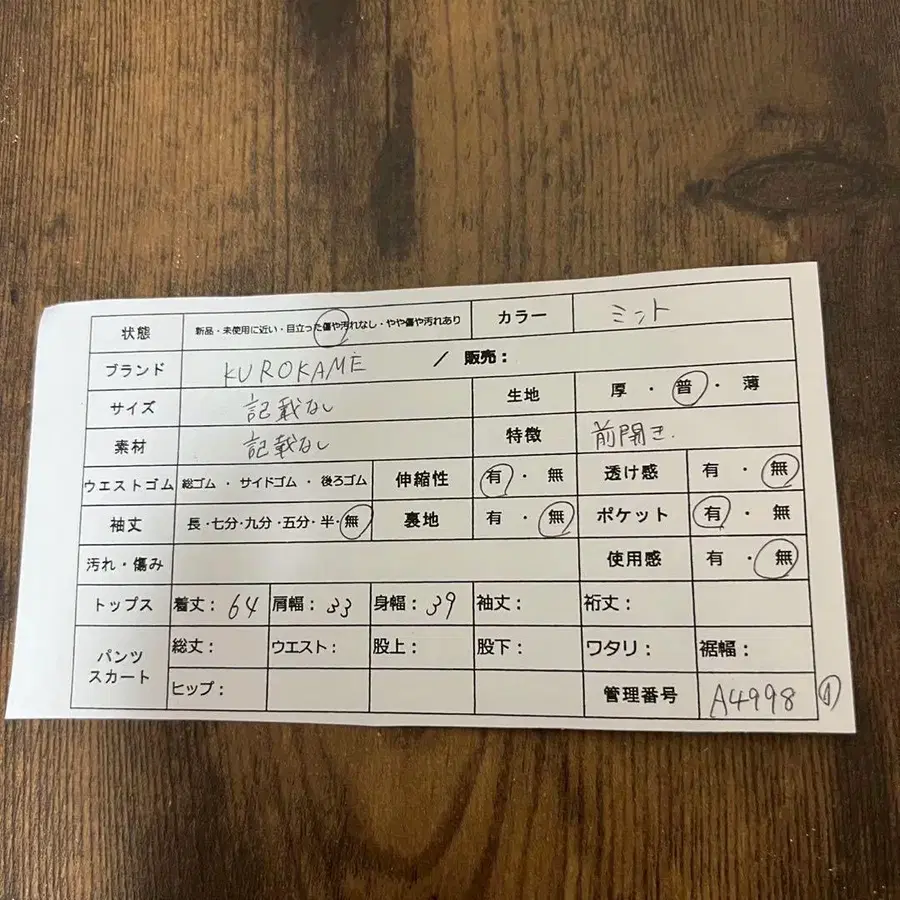 状態 新品・未使用に近い・目立った傷や汚れなし・やや傷や汚れあり カラー ミント
ブランド KUROKAME / 販売：
サイズ 記載なし 生地 厚・普・薄
素材 記載なし 特徴 前開き.
ウエストゴム 総ゴム・サイドゴム・後ろゴム 伸縮性 有・無 透け感 有・無
袖丈 長・七分・九分・五分・半・無 裏地 有・無 ポケット 有・無
汚れ・傷み 使用感 有・無
トップス 着丈：64 肩幅：33 身幅：39 袖丈： 裄丈：
パンツ スカート 総丈： ウエスト： 股上： 股下： ワタリ： 裾幅：
ヒップ： 管理番号 A4998